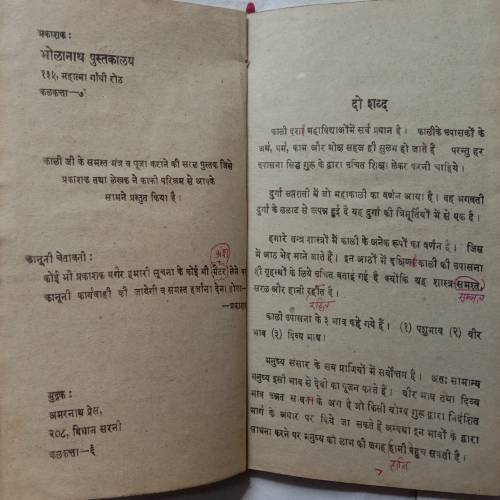 प्रकाशक:
भोलानाथ पुस्तकालय
१३५, महात्मा गाँधी रोड
कलकत्ता—७
काली जी के समस्त मंत्र व पूजा कराने की सरल पुस्तक जिसे
प्रकाशक तथा लेखक ने काफी परिश्रम से आपके
सामने प्रस्तुत किया है।
कानूनी चेतावनी:
अंश
कोई भी प्रकाशक बगैर हमारी सूचना के कोई भी मैटर लेने पर
कानूनी कार्यवाही की जायेगी व समस्त हर्जाना देना होगा—
—प्रकाशक
मुद्रक:
अमरनाथ प्रेस,
२०८, विधान सरनी
कलकत्ता—६
दो शब्द
काली दश महाविद्याओं में सर्व प्रधान है। काली के उपासकों के
अर्थ, धर्म, काम और मोक्ष सहज ही सुलभ हो जाते हैं परन्तु हर
उपासना सिद्ध गुरू के द्वारा उचित शिक्षा लेकर करनी चाहिये।
दुर्गा सप्तशती में जो महाकाली का वर्णन आया है। वह भगवती
दुर्गा के ललाट से उत्पन्न हुई हैं यह दुर्गा की त्रिमूर्तियों में से एक है।
हमारे तन्त्र शास्त्रों में काली के अनेक रूपों का वर्णन है। जिस
में आठ भेद माने जाते हैं। इन आठों में दक्षिण काली की उपासना
ही गृहस्थों के लिये उचित बताई गई है क्योंकि यह शास्त्र समस्त,
सरल और हानी रहीत है।
रहित
काली उपासना के ३ भाव कहे गये हैं। (१) पशुभाव (२) वीर
भाव (३) दिव्य भाव।
मनुष्य संसार के सब प्राणियों में सर्वोच्चय है। अतः सामान्य
मनुष्य इसी भाव से देवी का पूजन करते हैं। वीर भाव तथा दिव्य
भाव उन्नत के अंग हैं जो किसी योग्य गुरू द्वारा निर्देशित
मार्ग के अधार पर किये जा सकते हैं अन्यथा इन भावों के द्वारा
साधना करने पर मनुष्य को लाभ की जगह हानी पहुंच सकती है।
हानि